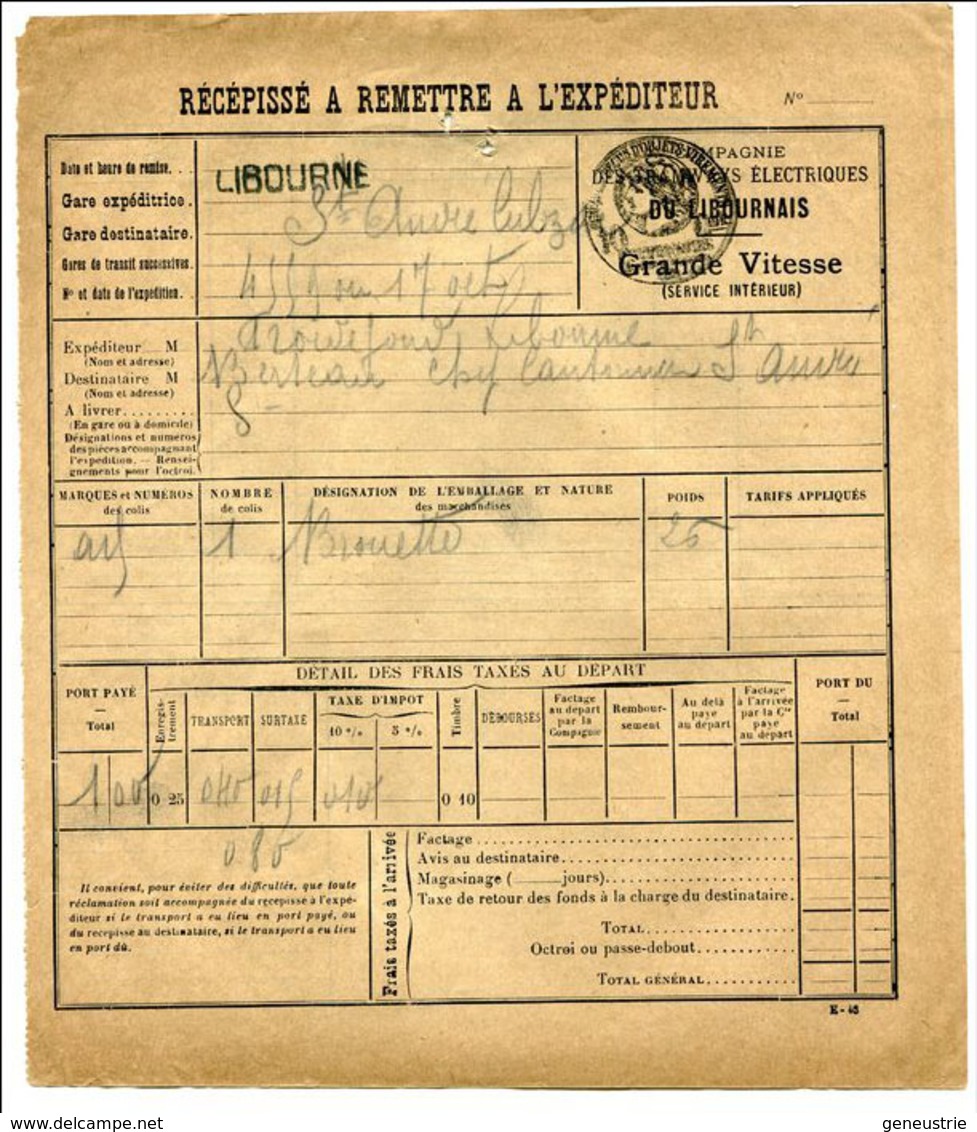 RÉCÉPISSÉ A REMETTRE A L'EXPÉDITEUR
N°
Date et heure de remise. . .
LIBOURNE
Gare expéditrice.
Gare destinataire.
St André Cubza
Gares de transit successives.
N° et date de l'expédition.
17 oct
COMPAGNIE
DES TRAMWAYS ÉLECTRIQUES
DU LIBOURNAIS
Grande Vitesse
(SERVICE INTÉRIEUR)
Expéditeur M
Libourne
(Nom et adresse)
Destinataire M
Berteau chef Cantonnier St André
(Nom et adresse)
A livrer
(En gare ou à domicile)
Désignations et numéros
des pièces accompagnant
l'expédition. — Rensei-
gnements pour l'octroi.
MARQUES et NUMÉROS
des colis
NOMBRE
de colis
DÉSIGNATION DE L'EMBALLAGE ET NATURE
des marchandises
POIDS
TARIFS APPLIQUÉS
1 Brouette 25
DÉTAIL DES FRAIS TAXÉS AU DÉPART
PORT PAYÉ
—
Total
Enregis-
trement
TRANSPORT
SURTAXE
TAXE D'IMPOT
10 %
5 %
Timbre
DÉBOURSÉS
Factage
au départ
par la
Compagnie
Rembour-
sement
Au delà
payé
au départ
Factage
à l'arrivée
par la Cie
payé
au départ
PORT DU
—
Total
0 25
0 10
Il convient, pour éviter des difficultés, que toute
réclamation soit accompagnée du récépissé à l'expé-
diteur si le transport a eu lieu en port payé, ou
du récépissé au destinataire, si le transport a eu lieu
en port dû.
Frais taxés à l'arrivée
Factage
Avis au destinataire
Magasinage (____jours)
Taxe de retour des fonds à la charge du destinataire.
TOTAL
Octroi ou passe-debout
TOTAL GÉNÉRAL
E-45
geneustrie